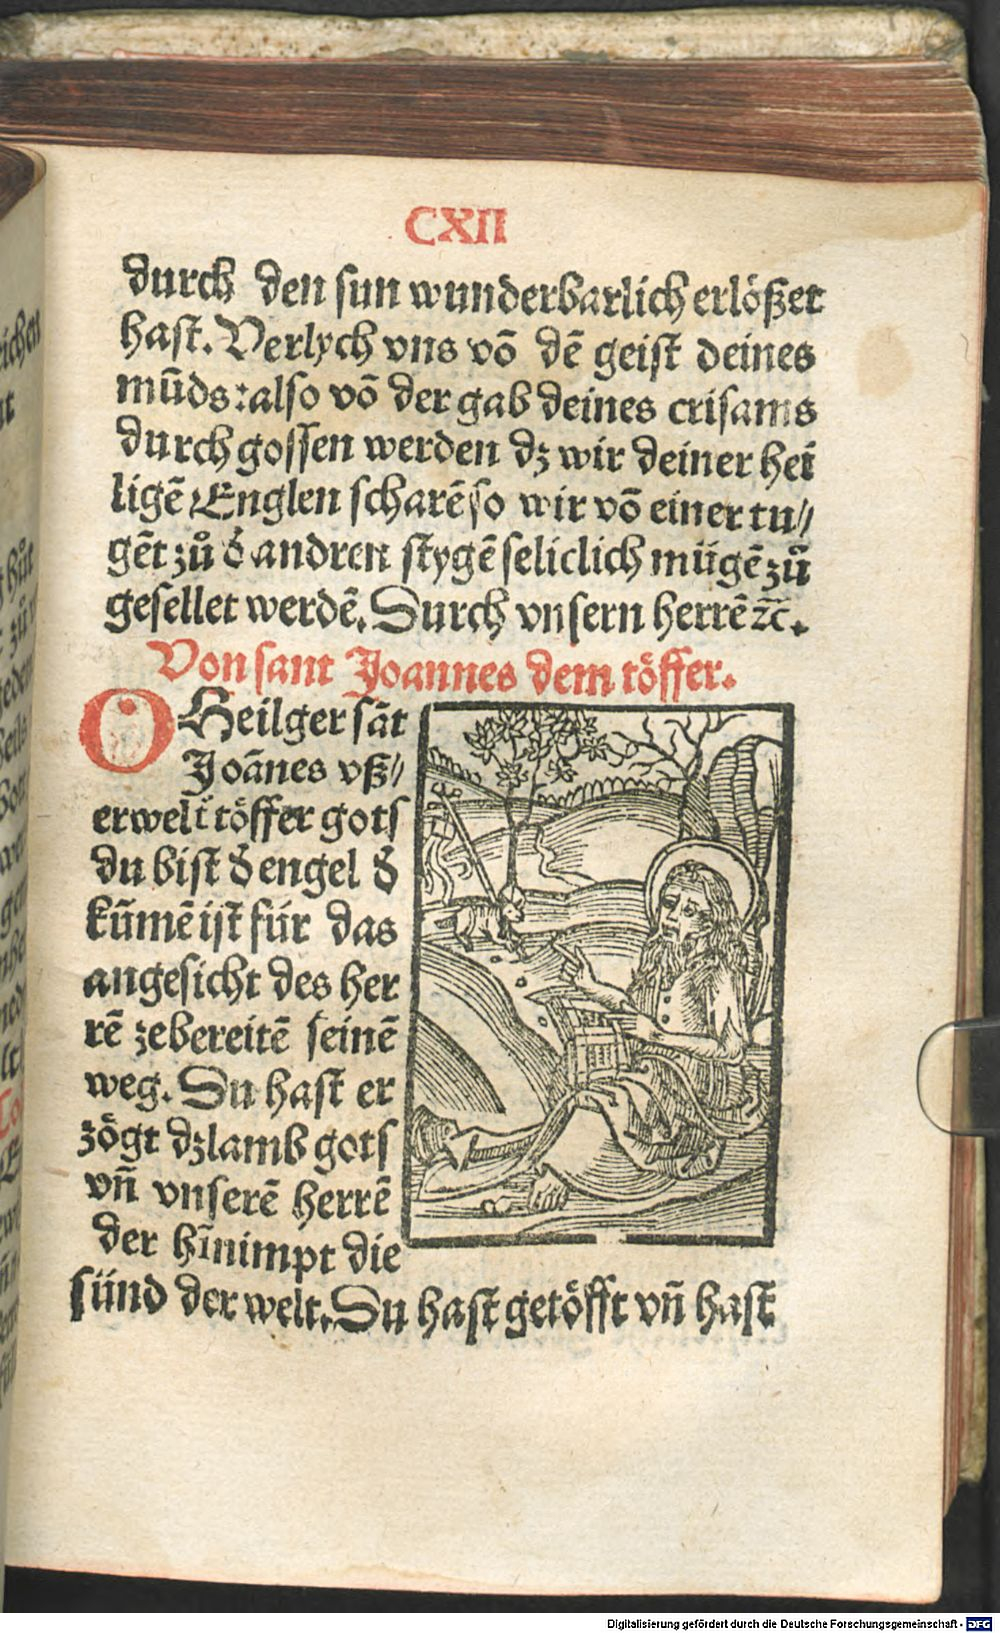 CXII
durch den sun wunderbarlich erlößet
hast. Verlych vns võ dẽ geist deines
mũds: also võ der gab deines crisams
durch gossen werden dz wir deiner hei
ligẽ Englen scharẽ so wir võ einer tu⸗
gẽt zů d̕ andren stygẽ seliclich mügẽ zů
gesellet werdẽ. Durch vnsern herrẽ ⁊c̃.
Von sant Joannes dem töffer.
O Heilger sãt
Joãnes vß⸗
erwelt töffer gots
du bist d̕ engel d̕
kũmẽ ist für das
angesicht des her
rẽ zebereitẽ seinẽ
weg. Du hast er
zögt dz lamb gots
vñ vnserẽ herrẽ
der hĩnimpt die
sünd der welt. Du hast getöfft vñ hast
Digitalisierung gefördert durch die Deutsche Forschungsgemeinschaft - DFG